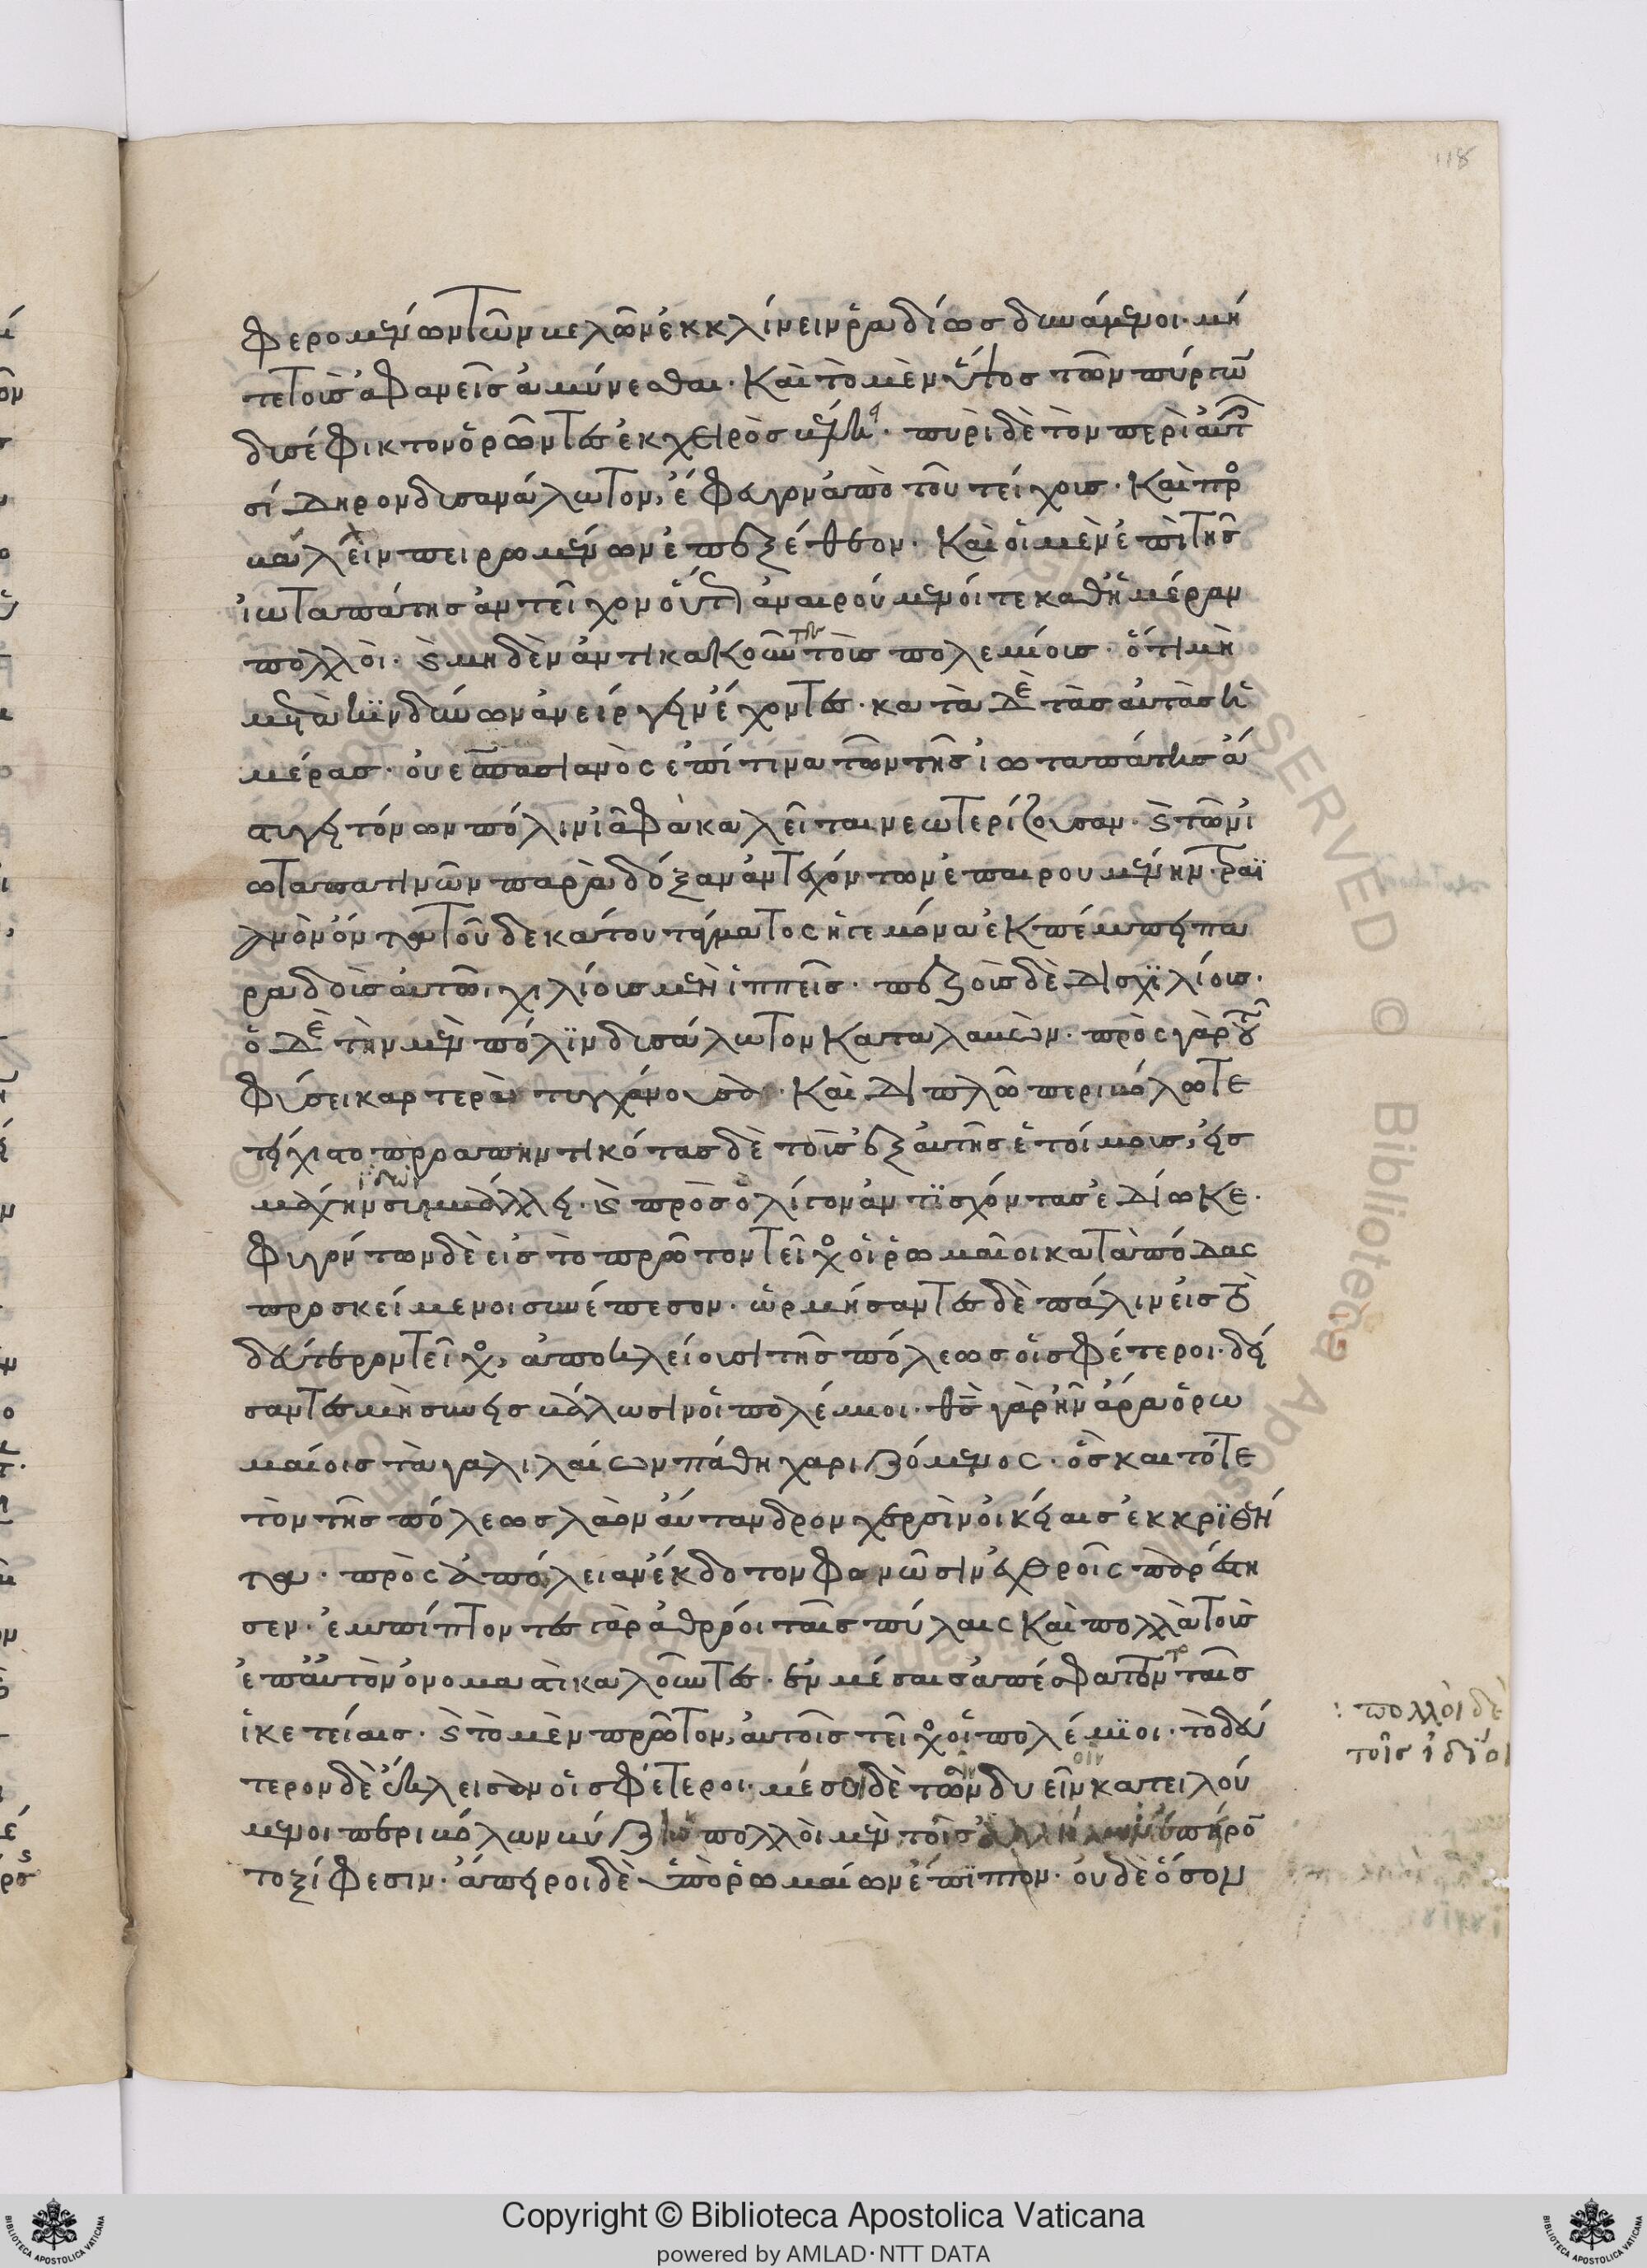 118
φερομένων τῶν μελῶν ἐκκλίνειν ῥαδίως δυνάμενοι· μή
τε τοὺς ἀφανεῖς ἀμύνεσθαι· Καὶ τὸ μὲν ὕψος τῶν πύργων
δυσέφικτον ὁρῶντες ἐκ χειρὸς · πυρὶ δὲ τὸν περὶ αὐτοὺς
σίδηρον δυσανάλωτον, ἔφευγον ἀπὸ τοῦ τείχους· Καὶ προσ
βάλλειν πειρωμένων ἐπεξέθεον· Καὶ οἱ μὲν ἐπὶ τῆς
ἰωταπάτης ἀντεῖχον οὕτως ἀναιρούμενοί τε καθ' ἡμέραν
πολλοὶ· καὶ μηδὲν ἀντικακοῦν τοὺς πολεμίους· ὅτι μὴ
μετὰ κινδύνων ἀνείργειν ἔχοντες· κατὰ δὲ τὰς αὐτὰς ἡ
μέρας· οὐεσπασιανὸς ἐπί τινα τῶν τῆς ἰωταπάτης ἀ
στυγειτόνων πόλιν ἰαφὰ καλεῖται νεωτερίζουσαν· καὶ τῶν ἰ
ωταπατηνῶν παρὰ δόξαν ἀντεχόντων ἐπαιρουμένην· τραϊ
ανὸν ὄντα τοῦ δεκάτου τάγματος ἡγεμόνα ἐκπέμπει πα
ραδοὺς αὐτῷ χιλίους μὲν ἱππεῖς· πεζοὺς δὲ δισχιλίους·
ὁ δὲ τὴν μὲν πόλιν δυσάλωτον καταλαβών· πρὸς γὰρ τῷ
φύσει καρτερὰ τυγχάνουσα· Καὶ διπλῷ περιβόλῳ τε
τείχιστο προαπηντικότας δὲ τοὺς ἐξ αὐτῆς ἑτοίμους, εἰς
μάχην ἰδὼν συμβάλλει· καὶ πρὸς ὀλίγον ἀντισχόντας ἐδίωκε·
φυγόντων δὲ εἰς τὸ πρῶτον τεῖχος οἱ ῥωμαῖοι κατὰ πόδας
προσκείμενοι συνέπεσον· ὡρμήσαντες δὲ πάλιν εἰς τὸ
δεύτερον τεῖχος, ἀποκλείουσι τῆς πόλεως οἱ σφέτεροι· δεί
σαντες μὴ συνεισβάλωσιν οἱ πολέμιοι· θεὸς γὰρ ἦν ἄρα ὁ ῥω
μαίοις τὰ γαλιλαίων πάθη χαριζόμενος· ὃς καὶ τότε
τὸν τῆς πόλεως λαὸν αὔτανδρον χερσὶν οἰκείαις ἐκκλεισθέν
τα· πρὸς ἀπώλειαν ἔκδοτον φονῶσιν ἐχθροῖς παρέστη
σεν· ἐμπίπτοντες γὰρ ἀθρόοι ταῖς πύλαις καὶ πολλὰ τοὺς
ἐπ' αὐτῶν ὀνομαστὶ καλοῦντες· ἐν μέσαις ἀπεσφάττοντο ταῖς
ἱκετείαις· καὶ τὸ μὲν πρῶτον, αὐτοῖς τεῖχος οἱ πολέμιοι· τὸ δεύ
τερον δὲ ἔκλεισαν οἱ σφέτεροι· μέσοι δὲ τῶν δυεῖν κατειλού
μενοι περιβόλων βύζην πολλοὶ μὲν τοῖς ἀλλήλων
το ξίφεσιν· ἄπειροι δὲ ὑπὸ ῥωμαίων ἔπιπτον· οὐδὲ ὅσον
: πολλοὶ δὲ
τοῖς ἰδίοι
Copyright © Biblioteca Apostolica Vaticana
powered by AMLAD·NTT DATA